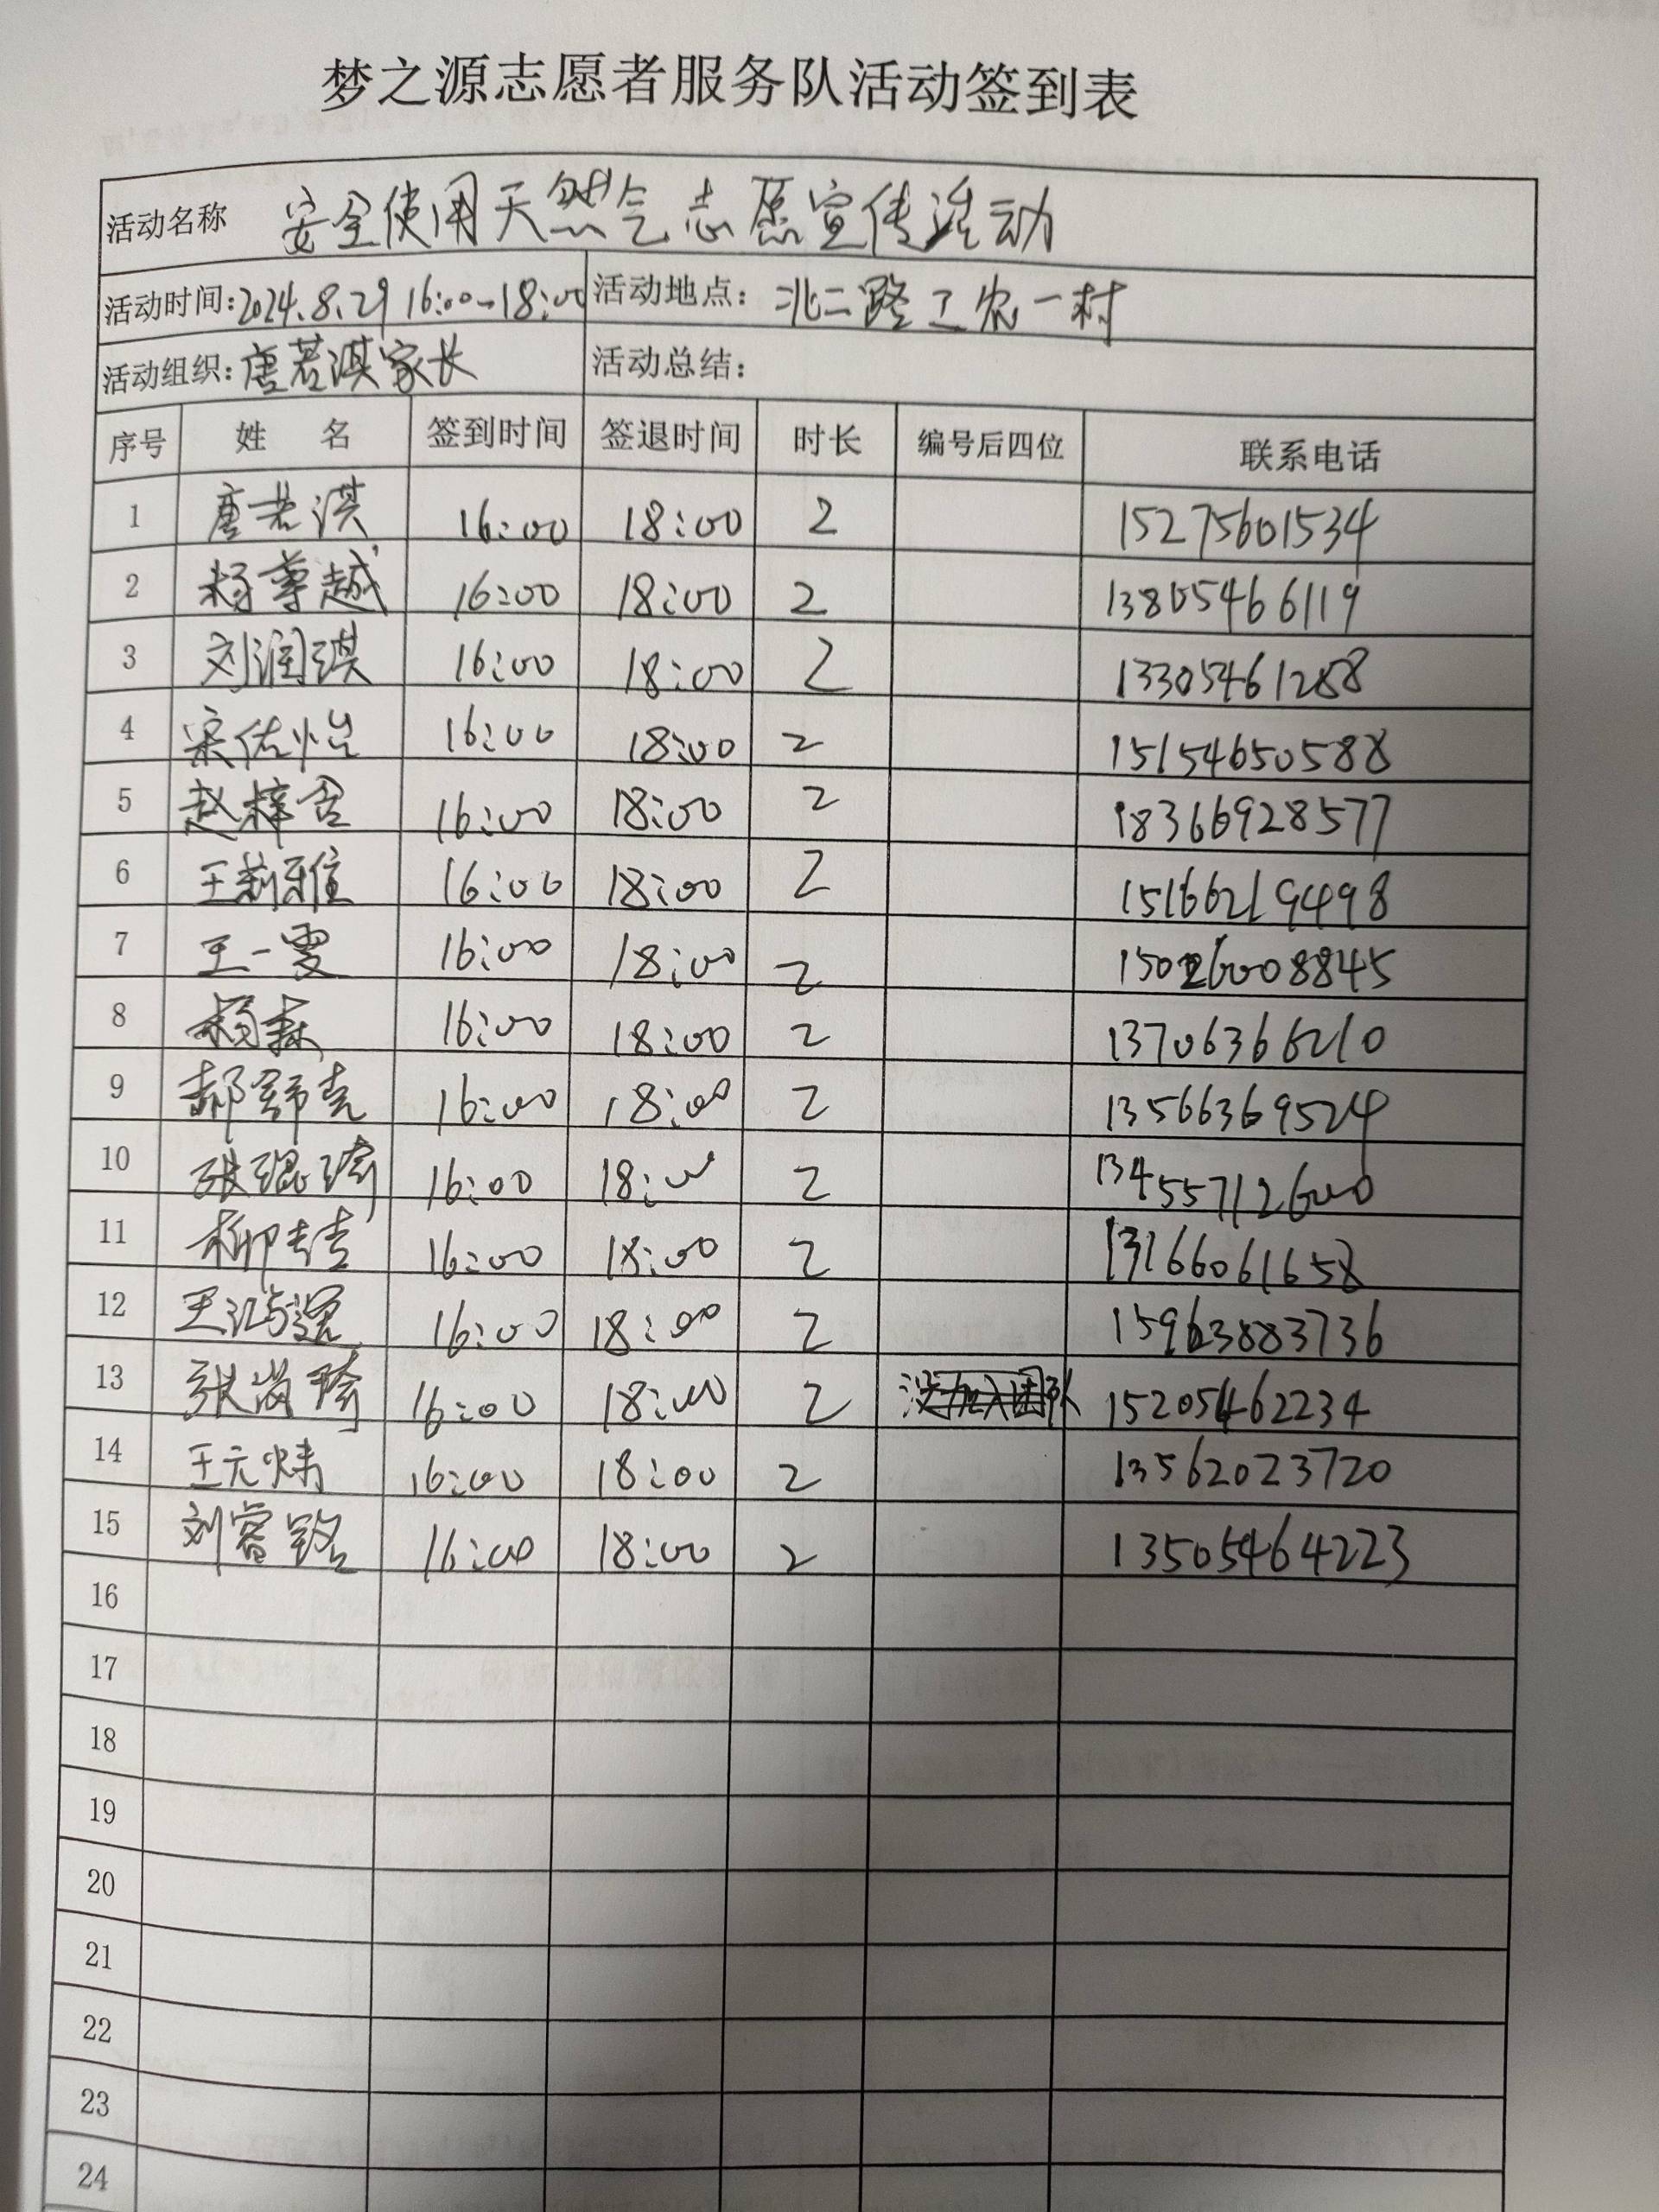 梦之源志愿者服务队活动签到表
活动名称 安全使用天然气志愿宣传活动
活动时间:2024.8.29 16:00-18:00 活动地点: 北二路工农一村
活动组织:唐若淇家长 活动总结:
序号 姓 名 签到时间 签退时间 时长 编号后四位 联系电话
1 唐若淇 16:00 18:00 2 15275601534
2 杨尊越 16:00 18:00 2 13805466119
3 刘润琪 16:00 18:00 2 13305461288
4 宋佑怡 16:00 18:00 2 15154650588
5 赵梓含 16:00 18:00 2 18366928577
6 王莉雅 16:00 18:00 2 15166219498
7 王一雯 16:00 18:00 2 15026008845
8 杨森 16:00 18:00 2 13706366210
9 郝舒克 16:00 18:00 2 13566369524
10 张琨瑜 16:00 18:00 2 13455712600
11 柳 16:00 18:00 2 13166061658
12 王 16:00 18:00 2 15963883736
13 张尚琦 16:00 18:00 2 没加入团队 15205462234
14 王元炜 16:00 18:00 2 13562023720
15 刘睿铭 16:00 18:00 2 13505464223
16
17
18
19
20
21
22
23
24